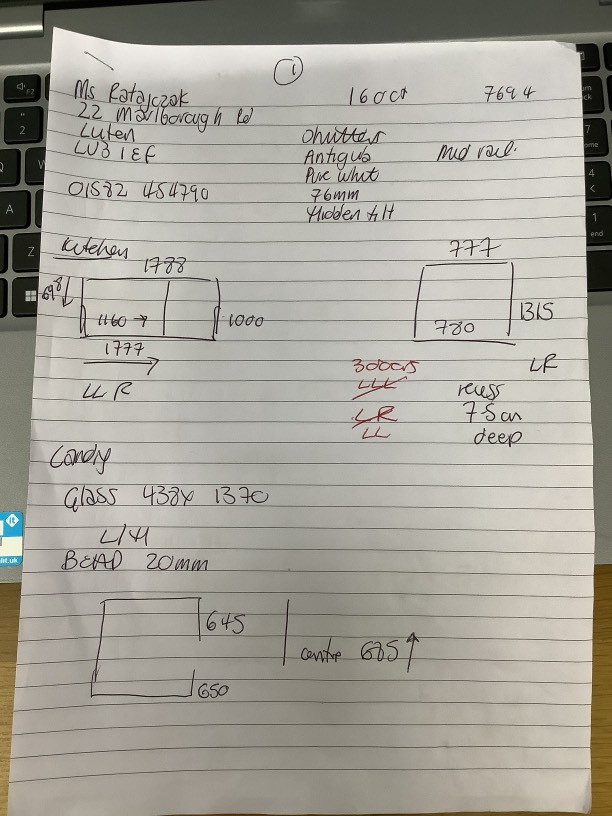 1
Ms Ratajczak 16 Oct 7694
22 Marlborough Rd
Luten
LU3 1EF
01582 454790
Shutters
Antigua Mid rail.
Pure Whit
76mm
Hidden tilt
Kitchen
1788
698
1160 →
1000
1777
LLR
777
1315
780
LR
3 doors
LLL
LR
LL
recess
7.5cm
deep
Condy
Glass 438x 1370
L/H
BEAD 20mm
645
650
centre 685